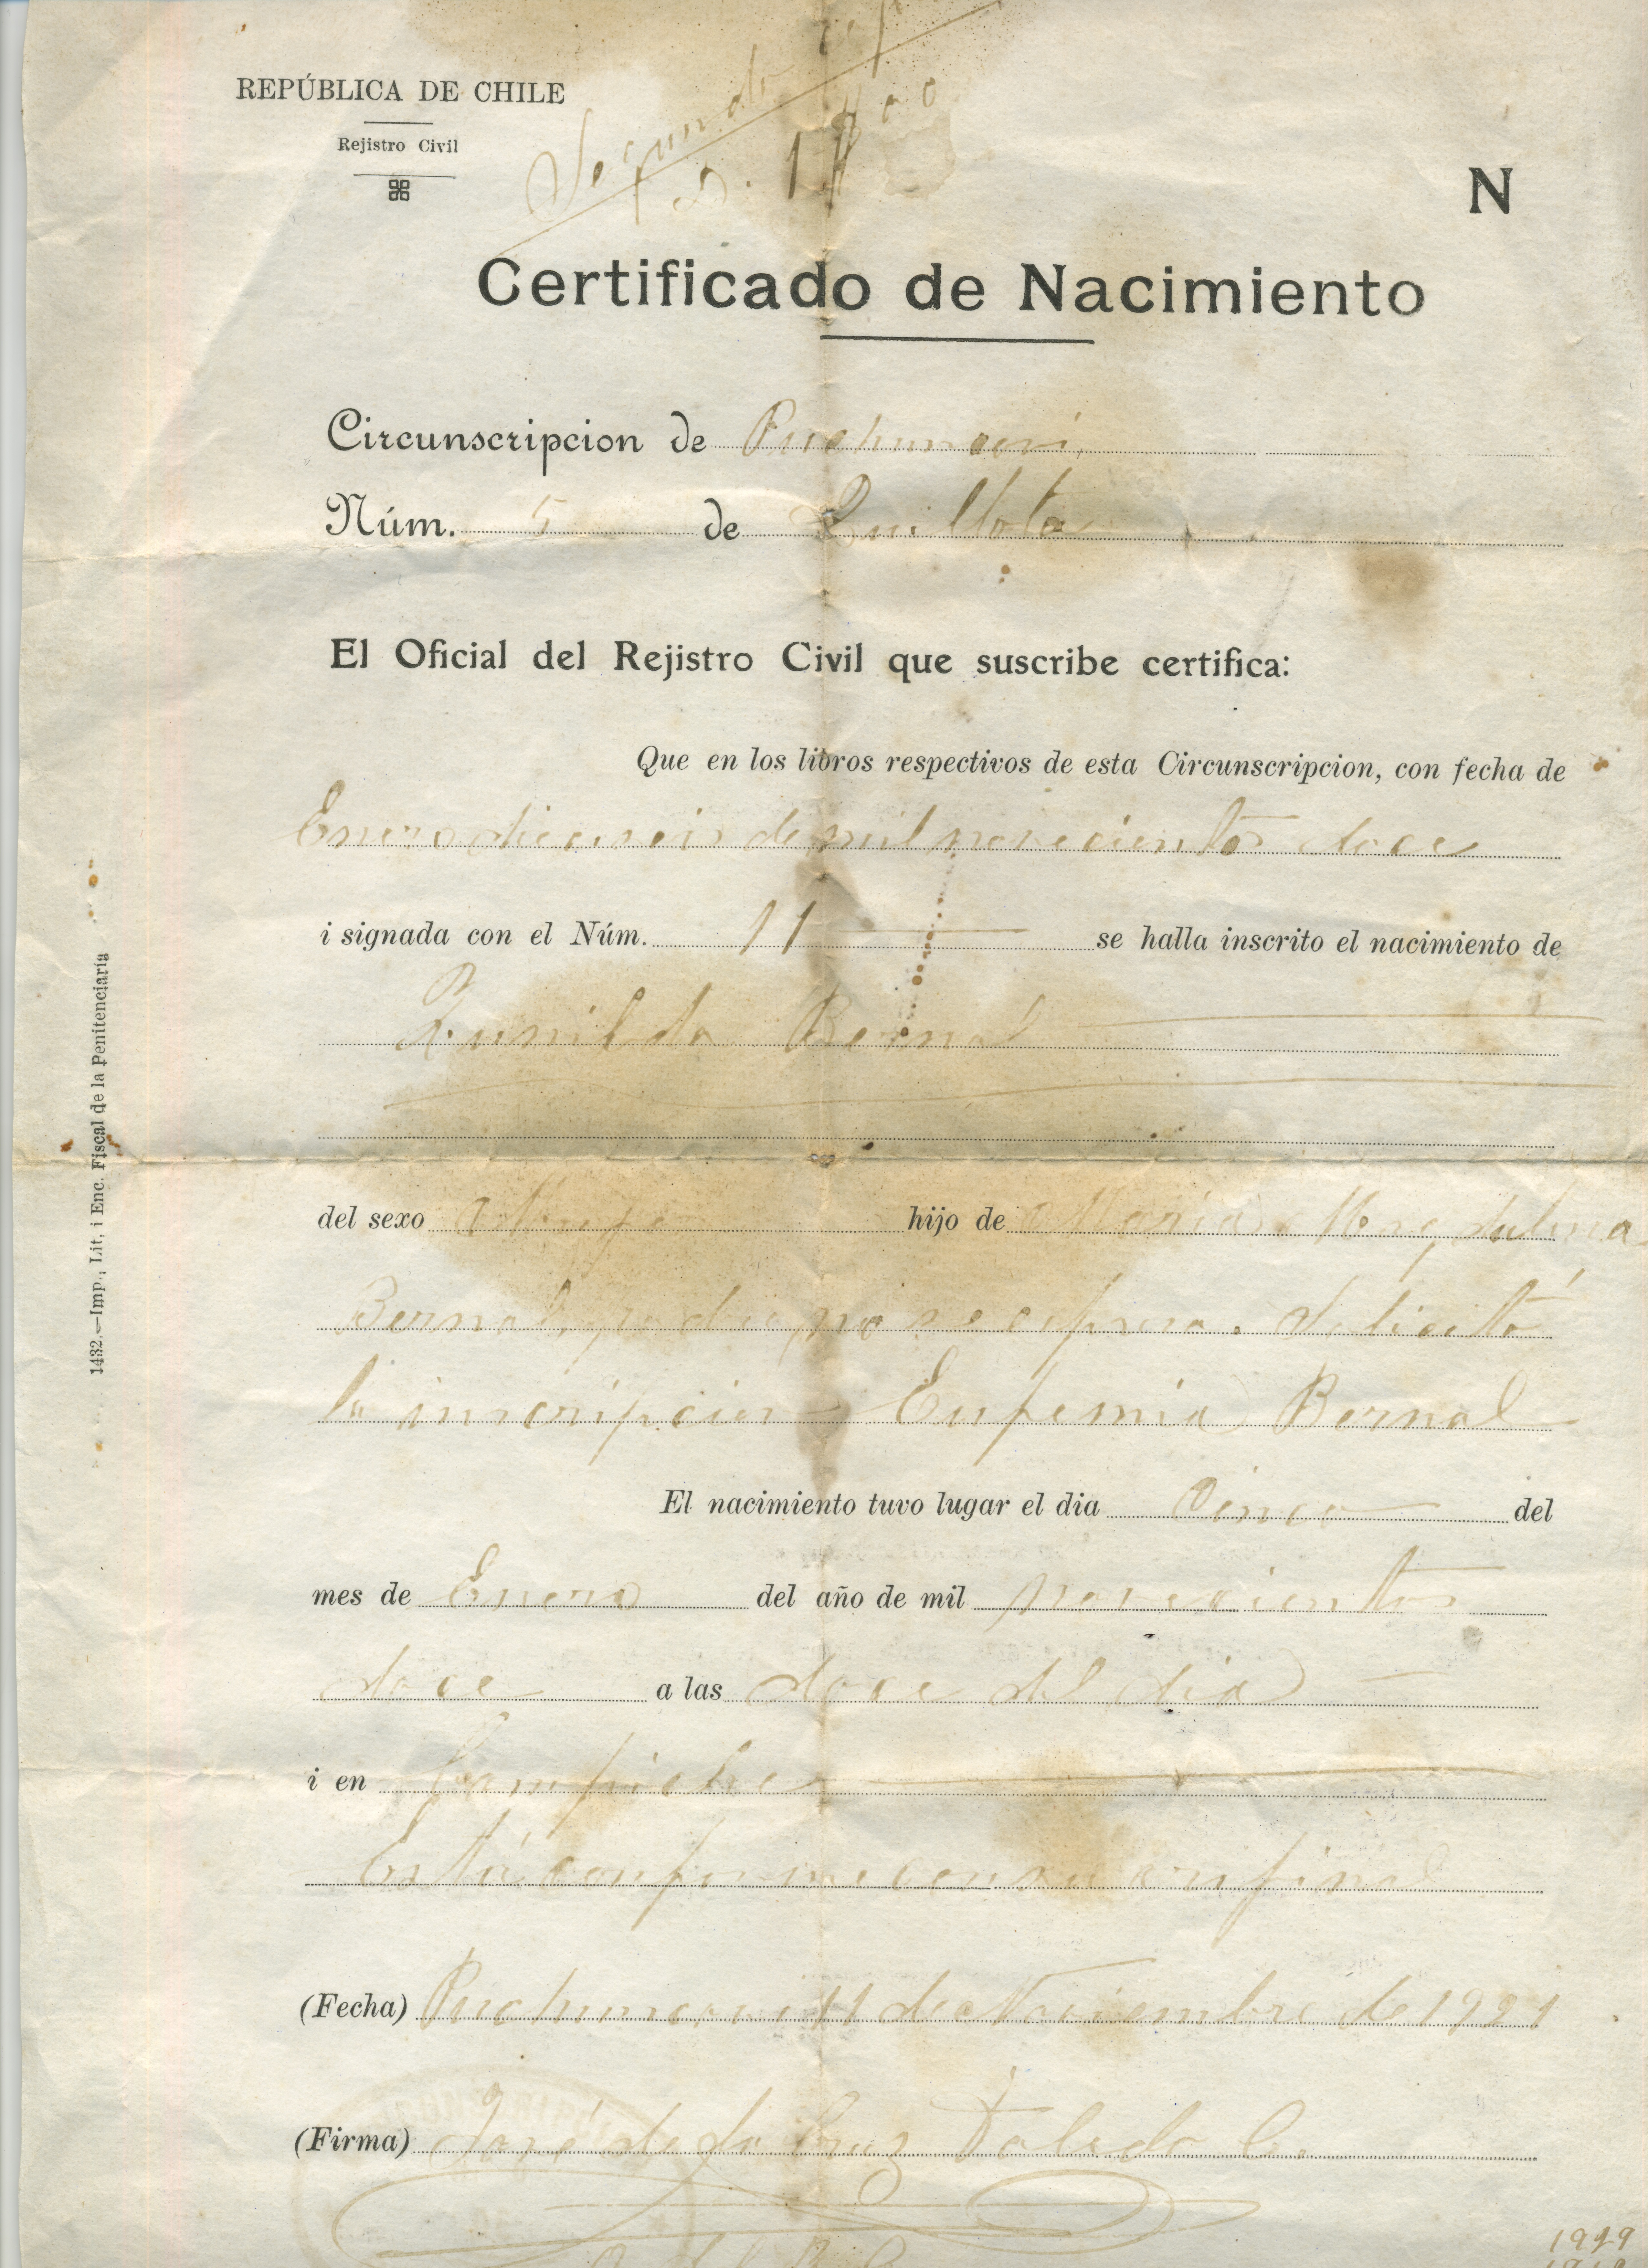 Segundo
REPÚBLICA DE CHILE
Rejistro Civil
N
Certificado de Nacimiento
Circunscripcion de Puchuncaví
Núm. 5 de Quillota
El Oficial del Rejistro Civil que suscribe certifica:
Que en los libros respectivos de esta Circunscripcion, con fecha de
Enero dieciseis de mil novecientos doce
i signada con el Núm. 11 se halla inscrito el nacimiento de
Zunilda Bernal
del sexo Mujer hijo de María Magdalena
Bernal, padre no se espresa. Solicitó
la inscripcion Eufemia Bernal
El nacimiento tuvo lugar el dia Cinco del
mes de Enero del año de mil novecientos
doce a las doce del dia
i en Campiche
Está conforme con su orijinal
(Fecha) Puchuncaví 11 de Noviembre de 1921
(Firma) José de la Cruz Toledo C.
1432.—Imp., Lit, i Enc. Fiscal de la Penitenciaría
1919